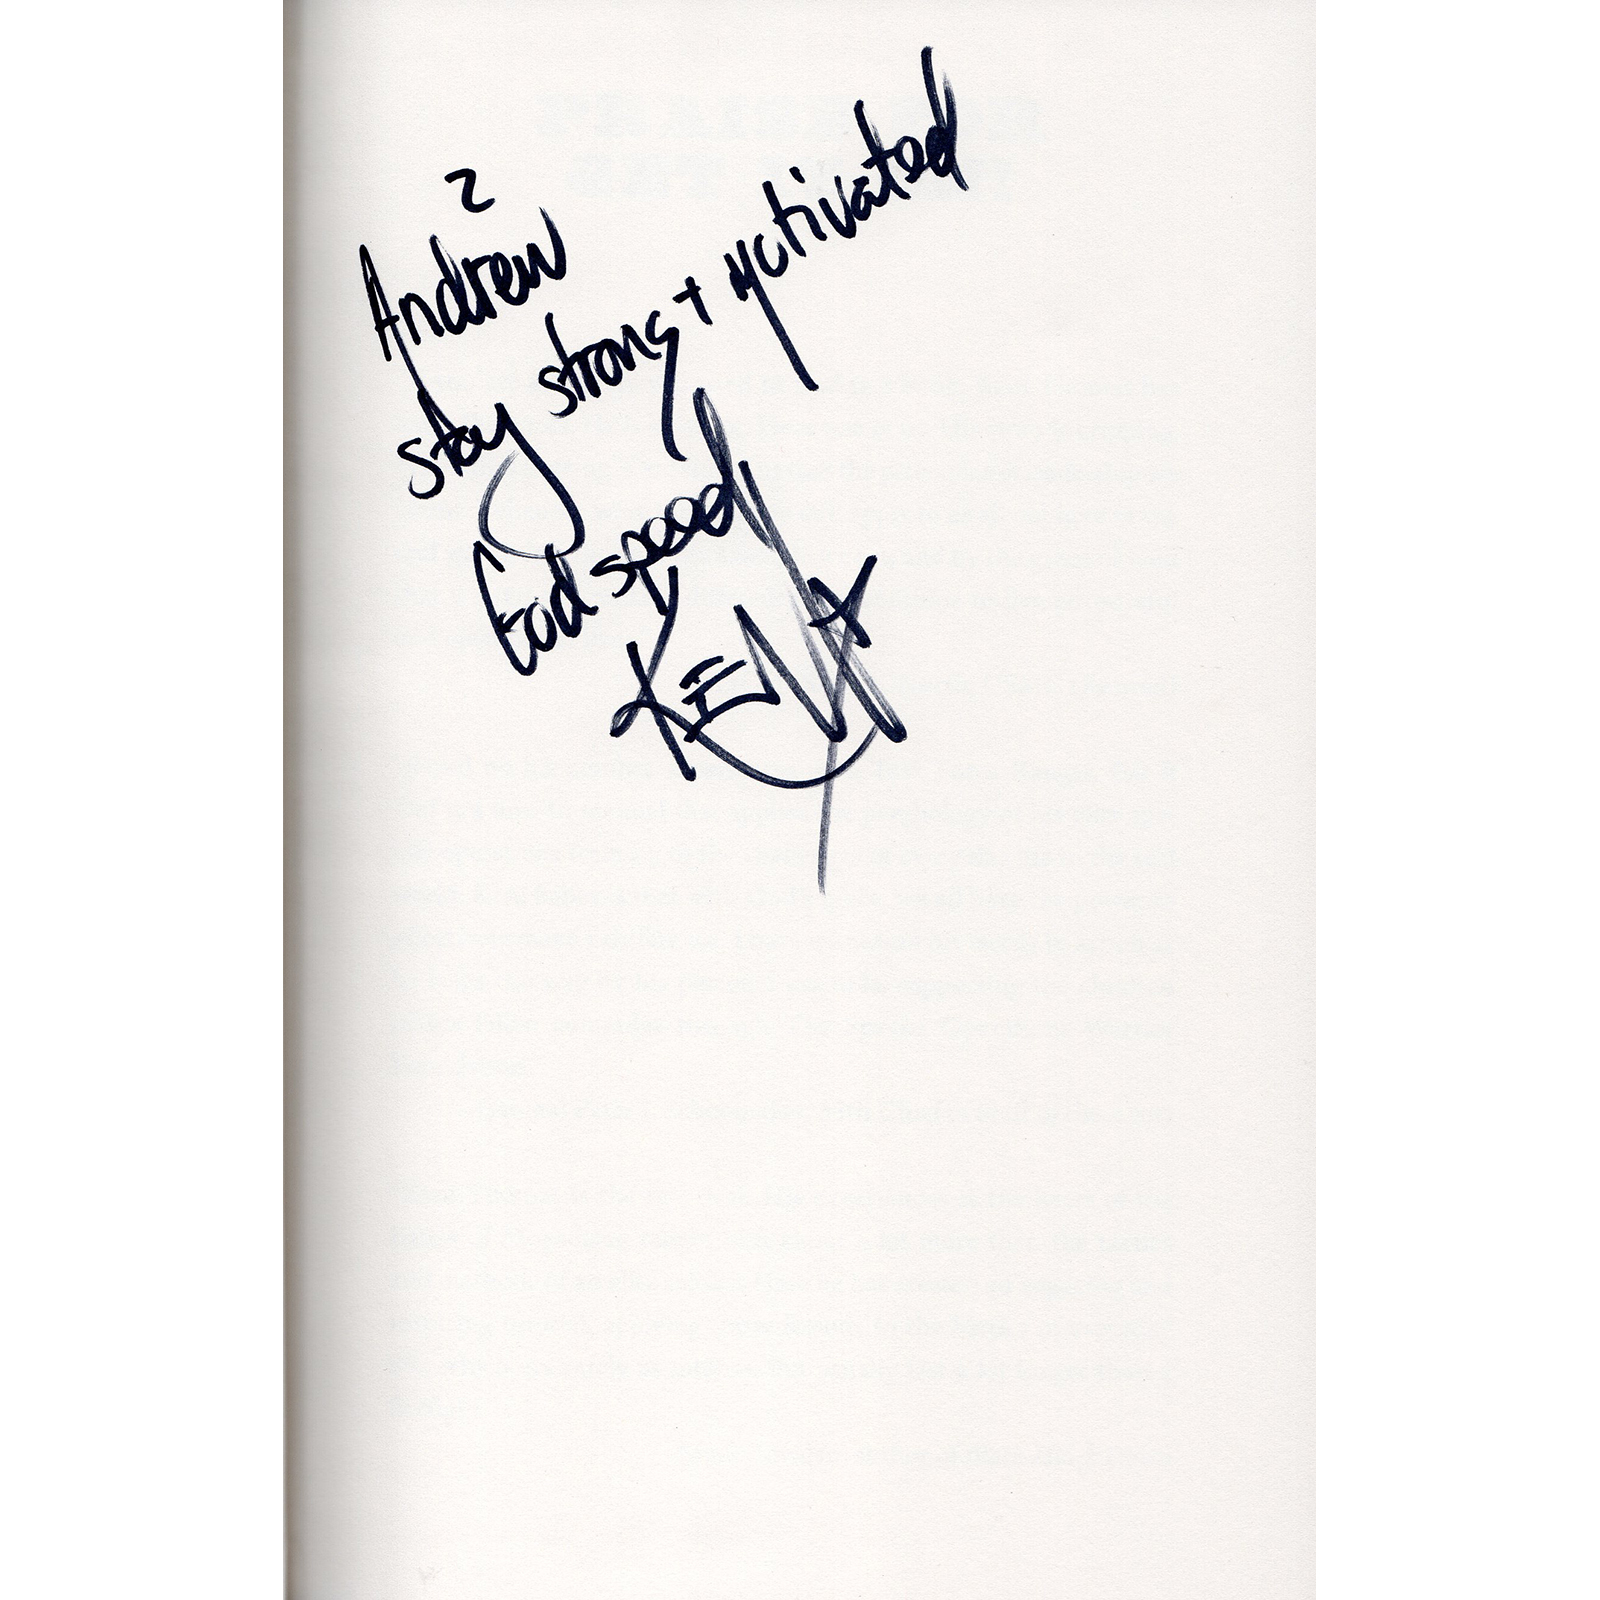 2
Andrew
stay strong + motivated
God speed
KENT